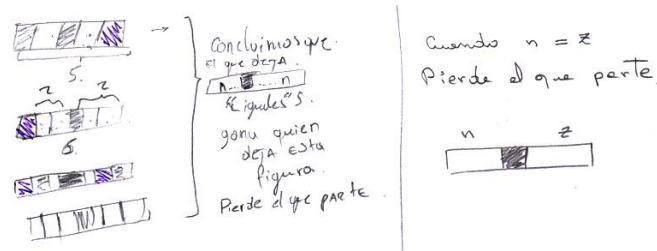 5.
2 2
6.
Concluimos que
el que DEJA
n... ....n
"Eigules" S.
gana quien
DEJA ESTA
figura.
Pierde el que PARTE.
Cuando n = z
Pierde el que parte
n z